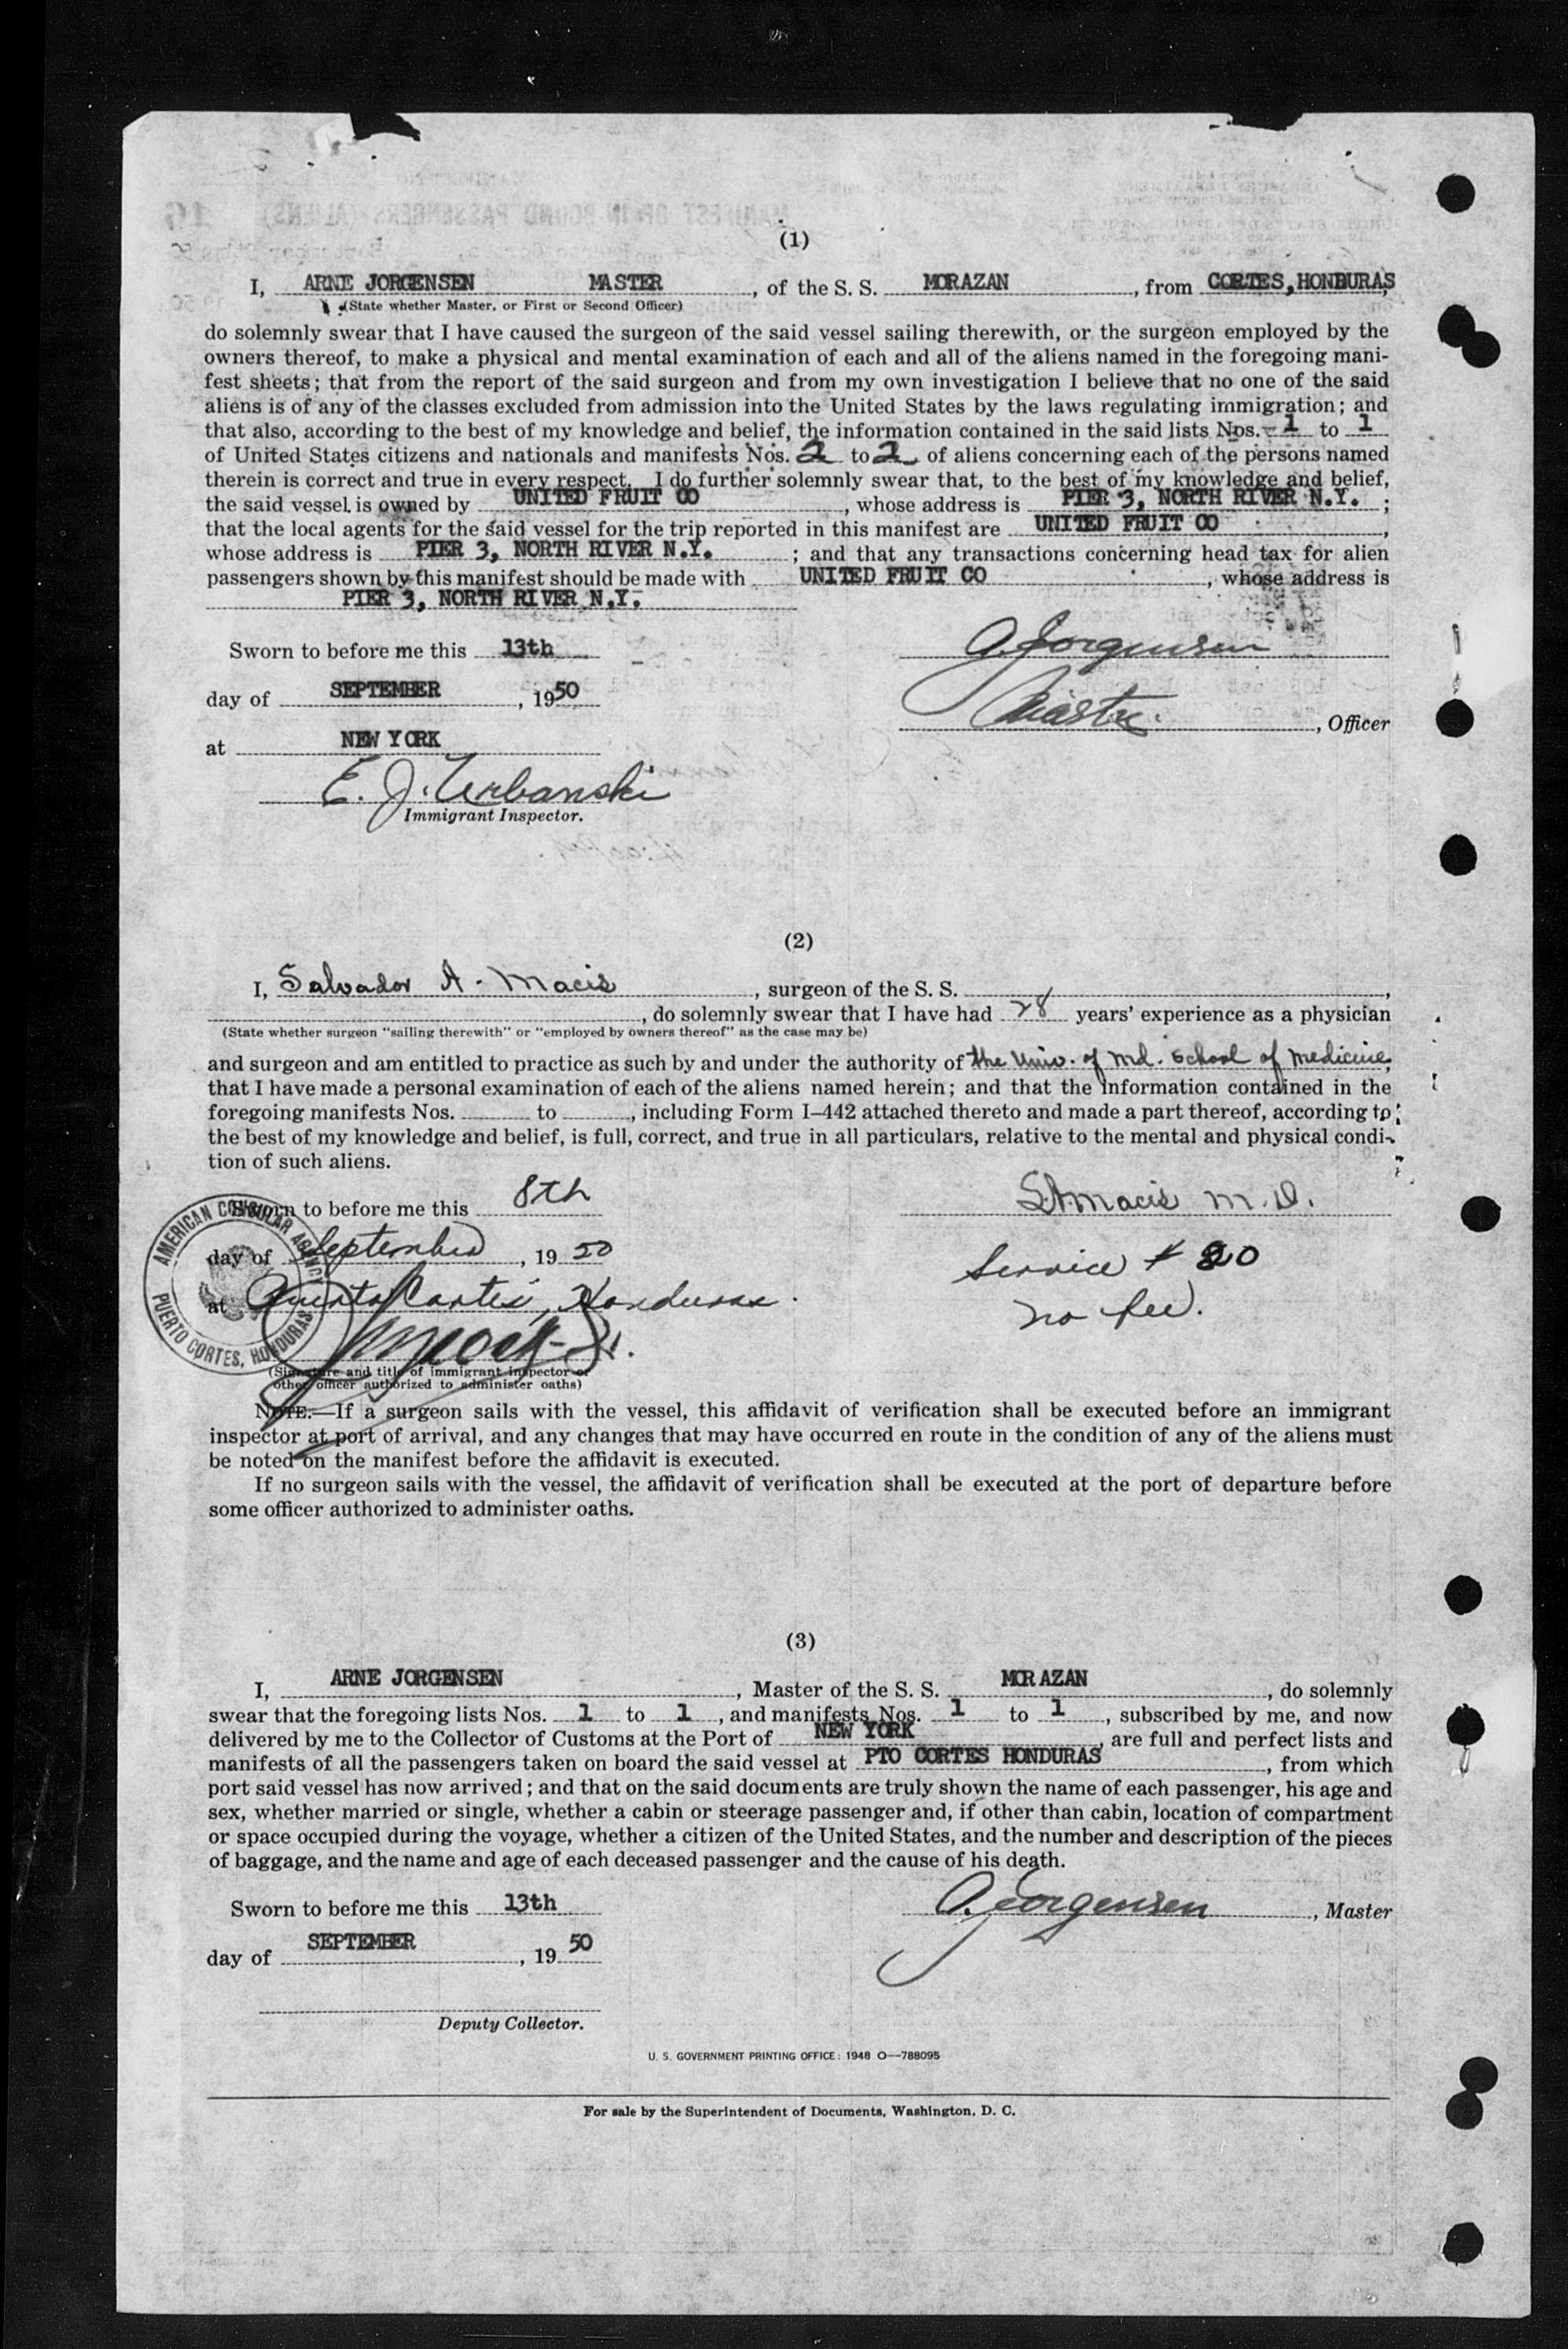 (1)
I, ARNE JORGENSEN MASTER, of the S. S. MORAZAN, from CORTES, HONDURAS,
(State whether Master, or First or Second Officer)
do solemnly swear that I have caused the surgeon of the said vessel sailing therewith, or the surgeon employed by the
owners thereof, to make a physical and mental examination of each and all of the aliens named in the foregoing mani-
fest sheets; that from the report of the said surgeon and from my own investigation I believe that no one of the said
aliens is of any of the classes excluded from admission into the United States by the laws regulating immigration; and
that also, according to the best of my knowledge and belief, the information contained in the said lists Nos. 1 to 1
of United States citizens and nationals and manifests Nos. 2 to 2 of aliens concerning each of the persons named
therein is correct and true in every respect. I do further solemnly swear that, to the best of my knowledge and belief,
the said vessel is owned by UNITED FRUIT CO, whose address is PIER 3, NORTH RIVER N.Y.;
that the local agents for the said vessel for the trip reported in this manifest are UNITED FRUIT CO,
whose address is PIER 3, NORTH RIVER N.Y.; and that any transactions concerning head tax for alien
passengers shown by this manifest should be made with UNITED FRUIT CO, whose address is
PIER 3, NORTH RIVER N.Y.
Sworn to before me this 13th
A. Jorgensen
day of SEPTEMBER, 1950
Master, Officer
at NEW YORK
E. J. Urbanski
Immigrant Inspector.
(2)
I, Salvador A. Macis, surgeon of the S. S.
, do solemnly swear that I have had 28 years' experience as a physician
(State whether surgeon "sailing therewith" or "employed by owners thereof" as the case may be)
and surgeon and am entitled to practice as such by and under the authority of the Univ. of Md. School of Medicine,
that I have made a personal examination of each of the aliens named herein; and that the information contained in the
foregoing manifests Nos. to , including Form I-442 attached thereto and made a part thereof, according to
the best of my knowledge and belief, is full, correct, and true in all particulars, relative to the mental and physical condi-
tion of such aliens.
Sworn to before me this 8th
S A Macis M.D.
day of September, 1950
Service # 20
at Puerto Cortes, Honduras.
no fee.
AMERICAN CONSULAR AGENCY
PUERTO CORTES, HONDURAS
(Signature and title of immigrant inspector or
other officer authorized to administer oaths)
NOTE.—If a surgeon sails with the vessel, this affidavit of verification shall be executed before an immigrant
inspector at port of arrival, and any changes that may have occurred en route in the condition of any of the aliens must
be noted on the manifest before the affidavit is executed.
If no surgeon sails with the vessel, the affidavit of verification shall be executed at the port of departure before
some officer authorized to administer oaths.
(3)
I, ARNE JORGENSEN, Master of the S. S. MORAZAN, do solemnly
swear that the foregoing lists Nos. 1 to 1, and manifests Nos. 1 to 1, subscribed by me, and now
delivered by me to the Collector of Customs at the Port of NEW YORK, are full and perfect lists and
manifests of all the passengers taken on board the said vessel at PTO CORTES HONDURAS, from which
port said vessel has now arrived; and that on the said documents are truly shown the name of each passenger, his age and
sex, whether married or single, whether a cabin or steerage passenger and, if other than cabin, location of compartment
or space occupied during the voyage, whether a citizen of the United States, and the number and description of the pieces
of baggage, and the name and age of each deceased passenger and the cause of his death.
Sworn to before me this 13th
A. Jorgensen, Master
day of SEPTEMBER, 1950
Deputy Collector.
U. S. GOVERNMENT PRINTING OFFICE: 1948 O—788095
For sale by the Superintendent of Documents, Washington, D. C.